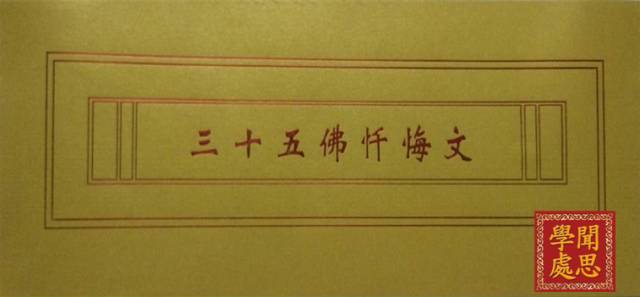 三十五佛忏悔文
聞思
學處